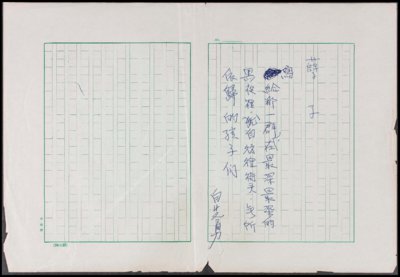 孽子
寫給那一群,在最深最深的
黑夜裡,獨自徬徨街頭,無所
依歸的孩子們
白先勇